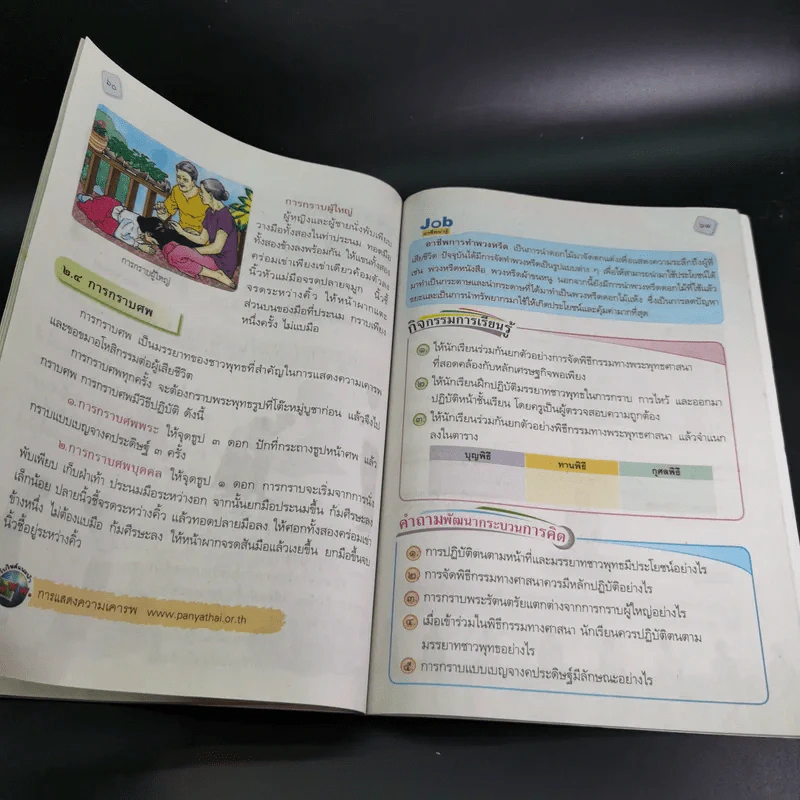 ๖๐
การกราบผู้ใหญ่
ผู้หญิงและผู้ชายนั่งพับเพียบ
วางมือทั้งสองในท่าประนม ทอดมือ
ทั้งสองข้างลงพร้อมกัน ให้แขนทั้งสอง
คร่อมเข่าเพียงเข่าเดียวค้อมตัวลง
นิ้วหัวแม่มือจรดปลายจมูก นิ้วชี้
จรดระหว่างคิ้ว ให้หน้าผากแตะ
ส่วนบนของมือที่ประนม กราบเพียง
หนึ่งครั้ง ไม่แบมือ
การกราบผู้ใหญ่
๒.๔ การกราบศพ
การกราบศพ เป็นมรรยาทของชาวพุทธที่สำคัญในการแสดงความเคารพ
และขอขมาอโหสิกรรมต่อผู้เสียชีวิต
การกราบศพทุกครั้ง จะต้องกราบพระพุทธรูปที่โต๊ะหมู่บูชาก่อน แล้วจึงไป
กราบศพ การกราบศพมีวิธีปฏิบัติ ดังนี้
๑.การกราบศพพระ ให้จุดธูป ๓ ดอก ปักที่กระถางธูปหน้าศพ แล้ว
กราบแบบเบญจางคประดิษฐ์ ๓ ครั้ง
๒.การกราบศพบุคคล ให้จุดธูป ๑ ดอก การกราบจะเริ่มจากการนั่ง
พับเพียบ เก็บฝ่าเท้า ประนมมือระหว่างอก จากนั้นยกมือประนมขึ้น ก้มศีรษะลง
เล็กน้อย ปลายนิ้วชี้จรดระหว่างคิ้ว แล้วทอดปลายมือลง ให้ศอกทั้งสองคร่อมเข่า
ข้างหนึ่ง ไม่ต้องแบมือ ก้มศีรษะลง ให้หน้าผากจรดสันมือแล้วเงยขึ้น ยกมือขึ้นจบ
นิ้วชี้อยู่ระหว่างคิ้ว
การแสดงความเคารพ www.panyathai.or.th
๖๑
Job
อาชีพน่ารู้
อาชีพการทำพวงหรีด เป็นการนำดอกไม้มาจัดตกแต่งเพื่อแสดงความระลึกถึงผู้ที่
เสียชีวิต ปัจจุบันได้มีการจัดทำพวงหรีดเป็นรูปแบบต่าง ๆ เพื่อให้สามารถนำมาใช้ประโยชน์ได้
เช่น พวงหรีดหนังสือ พวงหรีดผ้าขนหนู นอกจากนี้ยังมีการนำพวงหรีดดอกไม้ที่ใช้แล้ว
มาทำเป็นกระดาษและนำกระดาษที่ได้มาทำเป็นพวงหรีดดอกไม้แห้ง ซึ่งเป็นการลดปัญหา
ขยะและเป็นการนำทรัพยากรมาใช้ให้เกิดประโยชน์และคุ้มค่ามากที่สุด
กิจกรรมการเรียนรู้
๑. ให้นักเรียนร่วมกันยกตัวอย่างการจัดพิธีกรรมทางพระพุทธศาสนา
ที่สอดคล้องกับหลักเศรษฐกิจพอเพียง
๒. ให้นักเรียนฝึกปฏิบัติมรรยาทชาวพุทธในการกราบ การไหว้ และออกมา
ปฏิบัติหน้าชั้นเรียน โดยครูเป็นผู้ตรวจสอบความถูกต้อง
๓. ให้นักเรียนร่วมกันยกตัวอย่างพิธีกรรมทางพระพุทธศาสนา แล้วจำแนก
ลงในตาราง
บุญพิธี ทานพิธี กุศลพิธี
คำถามพัฒนากระบวนการคิด
๑. การปฏิบัติตนตามหน้าที่และมรรยาทชาวพุทธมีประโยชน์อย่างไร
๒. การจัดพิธีกรรมทางศาสนาควรมีหลักปฏิบัติอย่างไร
๓. การกราบพระรัตนตรัยแตกต่างจากการกราบผู้ใหญ่อย่างไร
๔. เมื่อเข้าร่วมในพิธีกรรมทางศาสนา นักเรียนควรปฏิบัติตนตาม
มรรยาทชาวพุทธอย่างไร
๕. การกราบแบบเบญจางคประดิษฐ์มีลักษณะอย่างไร